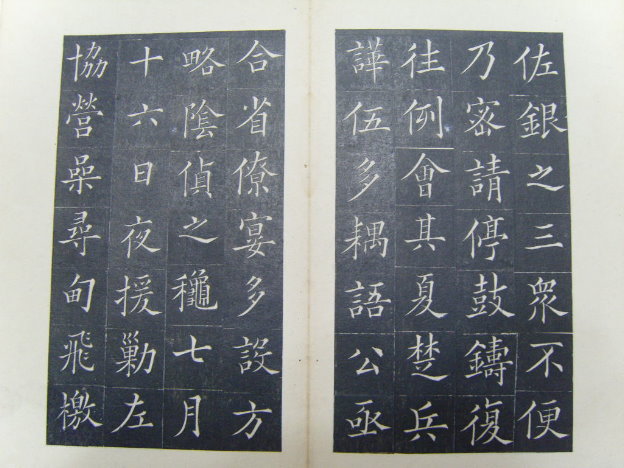 佐銀之三衆不便
乃密請停鼓鑄復
往例會其夏楚兵
譁伍多耦語公亟
合省僚宴多設方
略陰偵之穐七月
十六日夜援勦左
協營喿尋甸飛檄